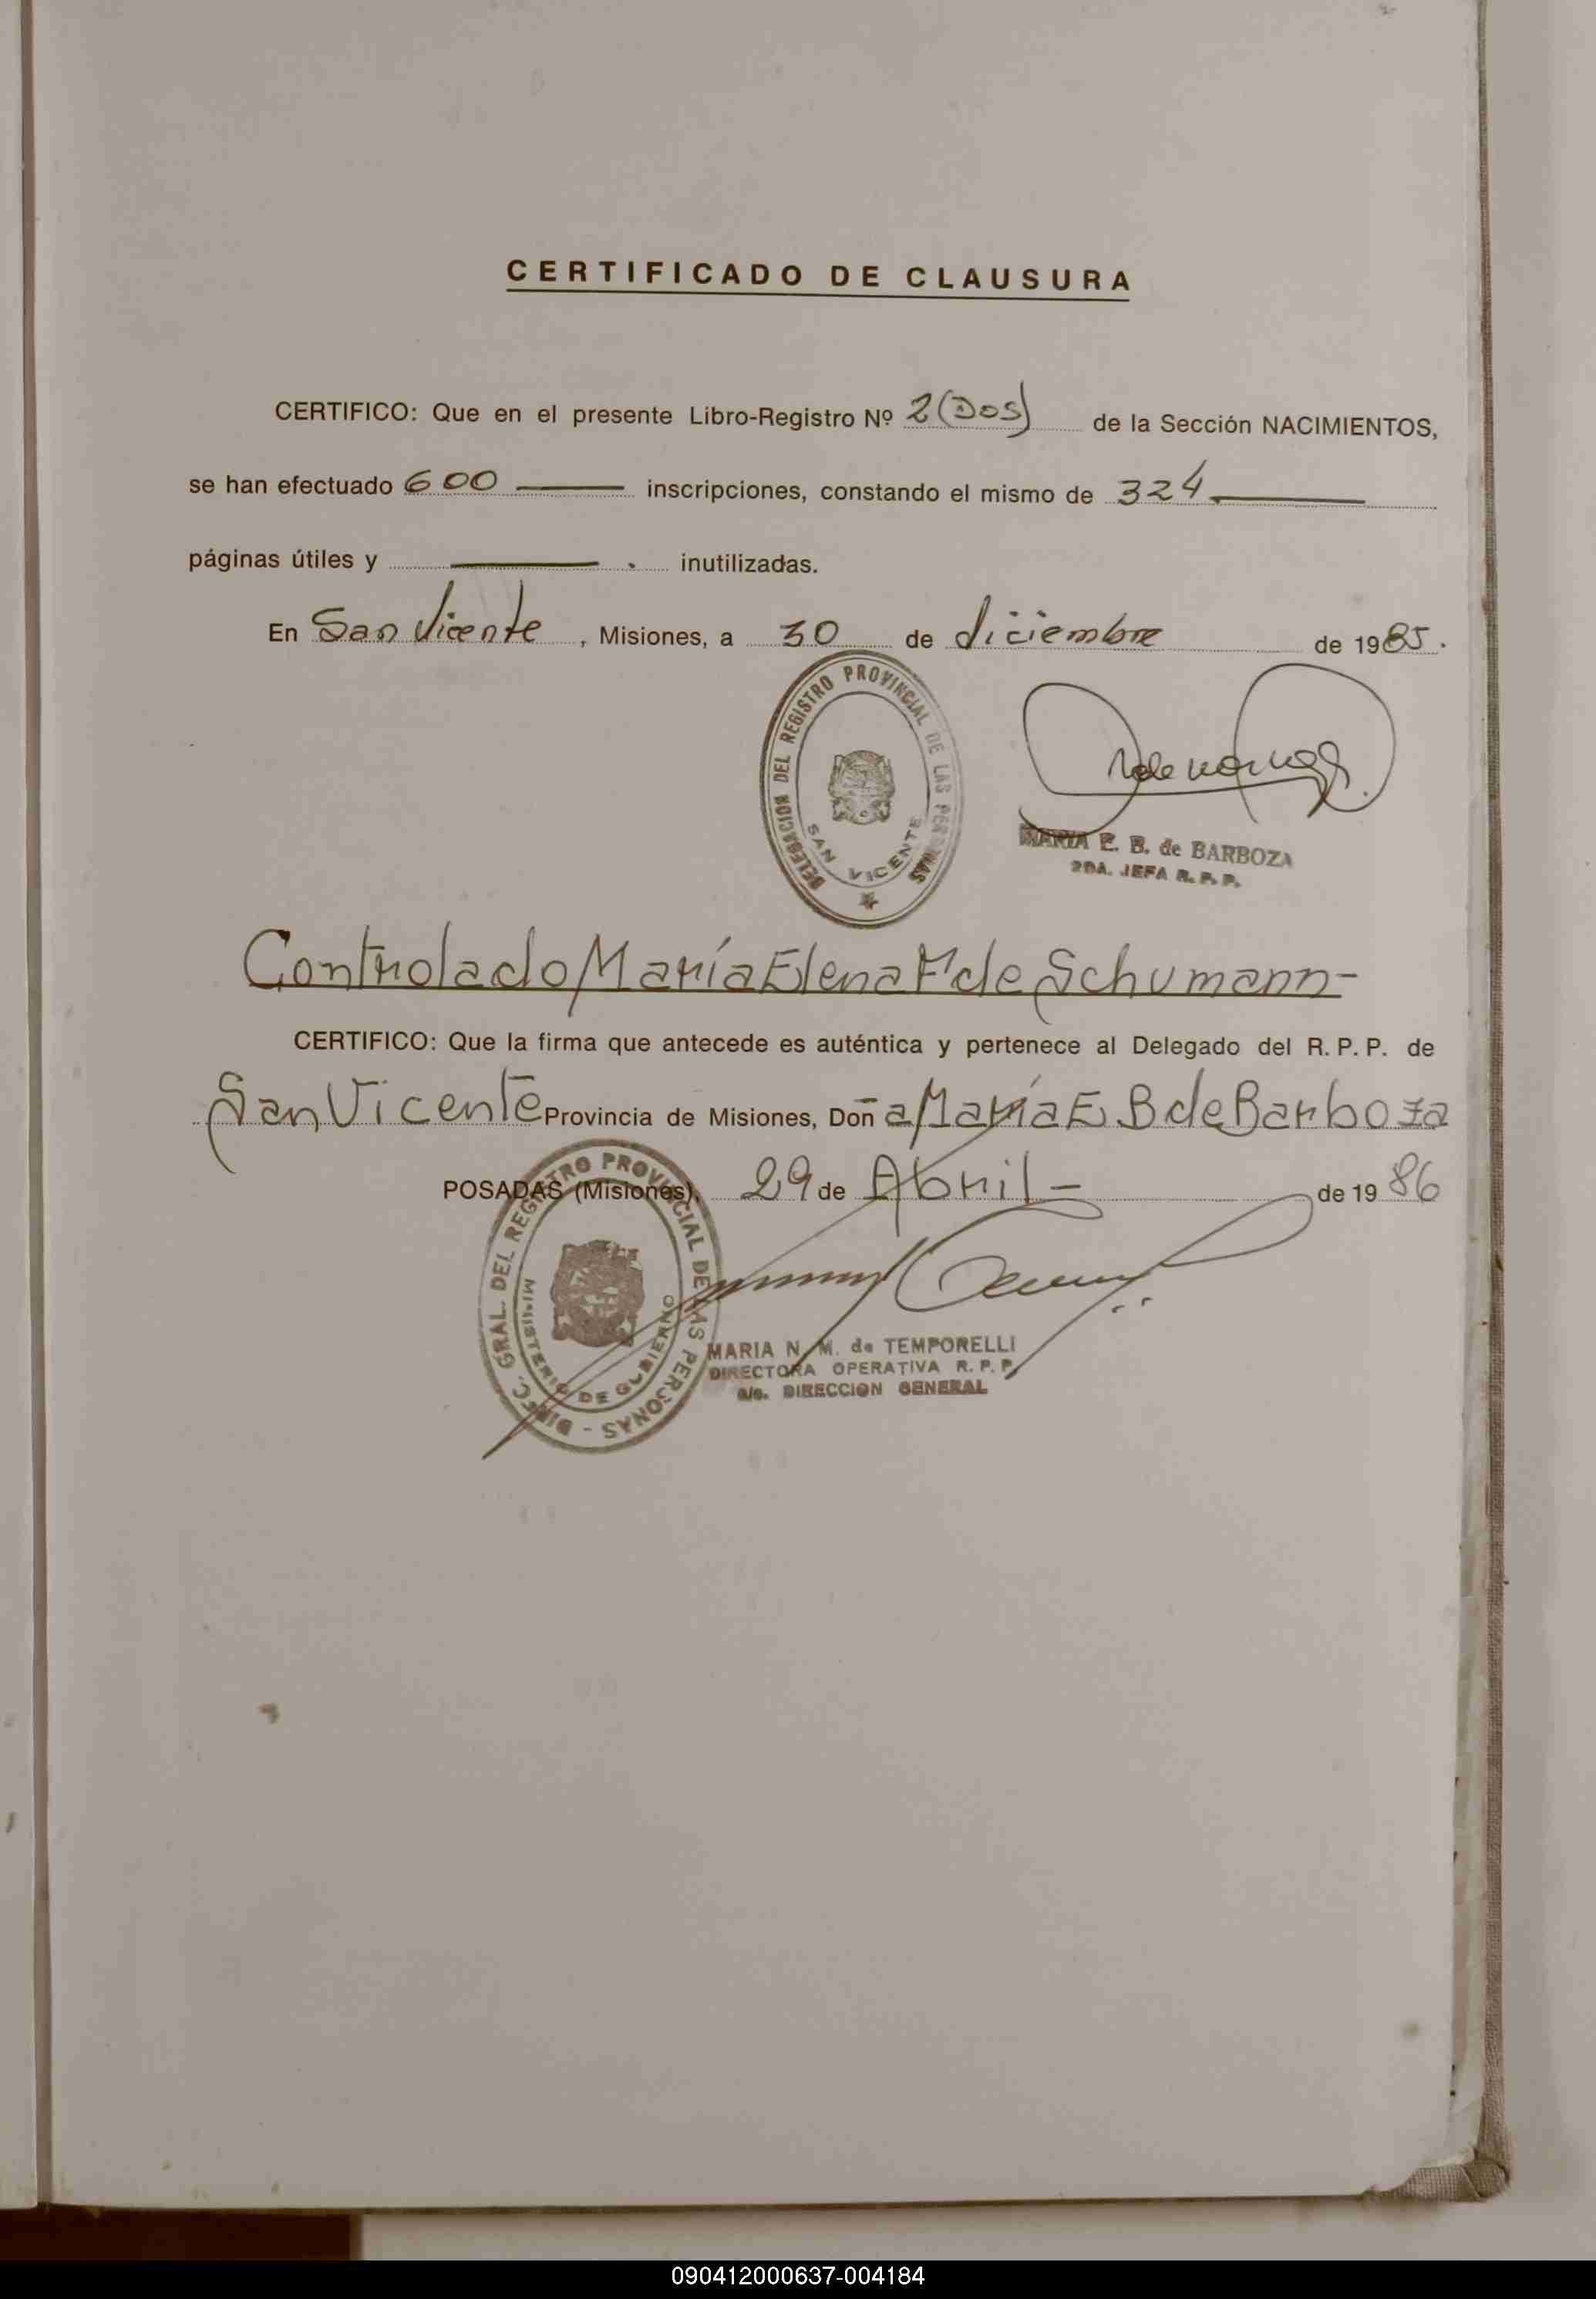 CERTIFICADO DE CLAUSURA
CERTIFICO: Que en el presente Libro-Registro Nº 2 (DOS) de la Sección NACIMIENTOS,
se han efectuado 600 inscripciones, constando el mismo de 324
páginas útiles y . inutilizadas.
En San Vicente, Misiones, a 30 de diciembre de 1985.
DELEGACION DEL REGISTRO PROVINCIAL DE LAS PERSONAS
SAN VICENTE
MARIA E. B. de BARBOZA
2DA. JEFA R. P. P.
Controlado María Elena de Schumann-
CERTIFICO: Que la firma que antecede es auténtica y pertenece al Delegado del R. P. P. de
San Vicente Provincia de Misiones, Doña María E B de Barboza
POSADAS (Misiones), 29 de Abril - de 1986
DIREC. GRAL. DEL REGISTRO PROVINCIAL DE LAS PERSONAS -
MINISTERIO DE GOBIERNO
MARIA N. M. de TEMPORELLI
DIRECTORA OPERATIVA R. P. P.
a/c. DIRECCION GENERAL
090412000637-004184